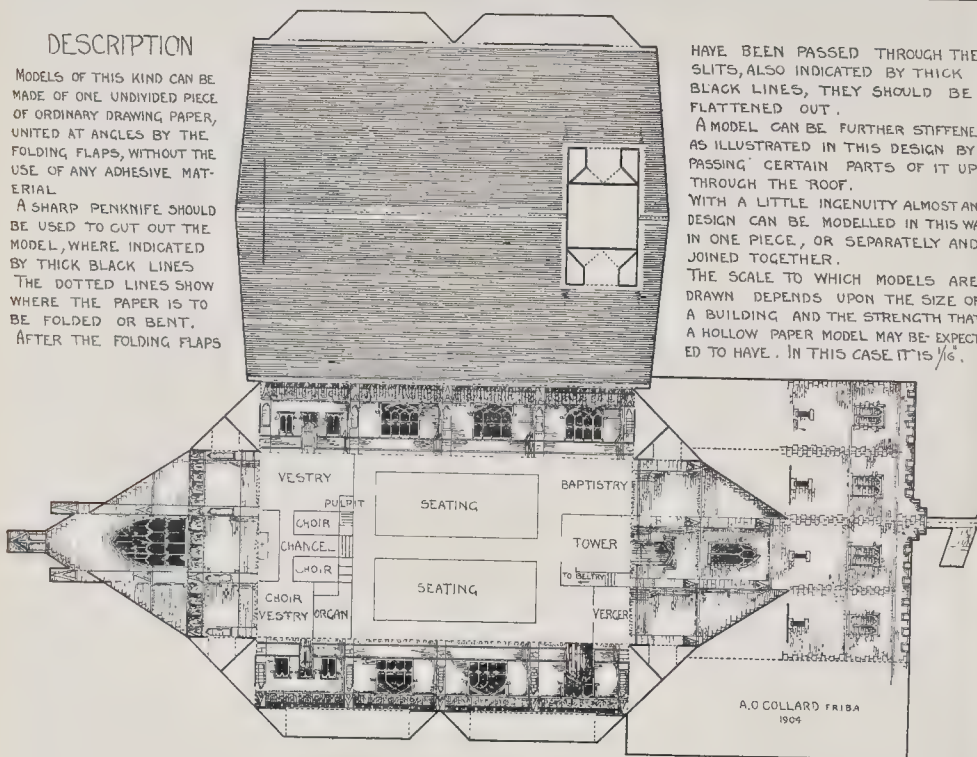 DESCRIPTION
MODELS OF THIS KIND CAN BE
MADE OF ONE UNDIVIDED PIECE
OF ORDINARY DRAWING PAPER,
UNITED AT ANGLES BY THE
FOLDING FLAPS, WITHOUT THE
USE OF ANY ADHESIVE MAT-
ERIAL
A SHARP PENKNIFE SHOULD
BE USED TO CUT OUT THE
MODEL, WHERE INDICATED
BY THICK BLACK LINES
THE DOTTED LINES SHOW
WHERE THE PAPER IS TO
BE FOLDED OR BENT.
AFTER THE FOLDING FLAPS
HAVE BEEN PASSED THROUGH THE
SLITS, ALSO INDICATED BY THICK
BLACK LINES, THEY SHOULD BE
FLATTENED OUT.
A MODEL CAN BE FURTHER STIFFENE
AS ILLUSTRATED IN THIS DESIGN BY
PASSING CERTAIN PARTS OF IT UP
THROUGH THE ROOF.
WITH A LITTLE INGENUITY ALMOST AN
DESIGN CAN BE MODELLED IN THIS WA
IN ONE PIECE, OR SEPARATELY AND
JOINED TOGETHER.
THE SCALE TO WHICH MODELS ARE
DRAWN DEPENDS UPON THE SIZE OF
A BUILDING AND THE STRENGTH THAT
A HOLLOW PAPER MODEL MAY BE EXPECT
ED TO HAVE. IN THIS CASE IT IS 1/16".
VESTRY
PULPIT
CHOIR
CHANCEL
CHOIR
CHOIR
VESTRY
ORGAN
SEATING
SEATING
BAPTISTRY
TOWER
TO BELFRY
VERGER
A.O COLLARD FRIBA
1904